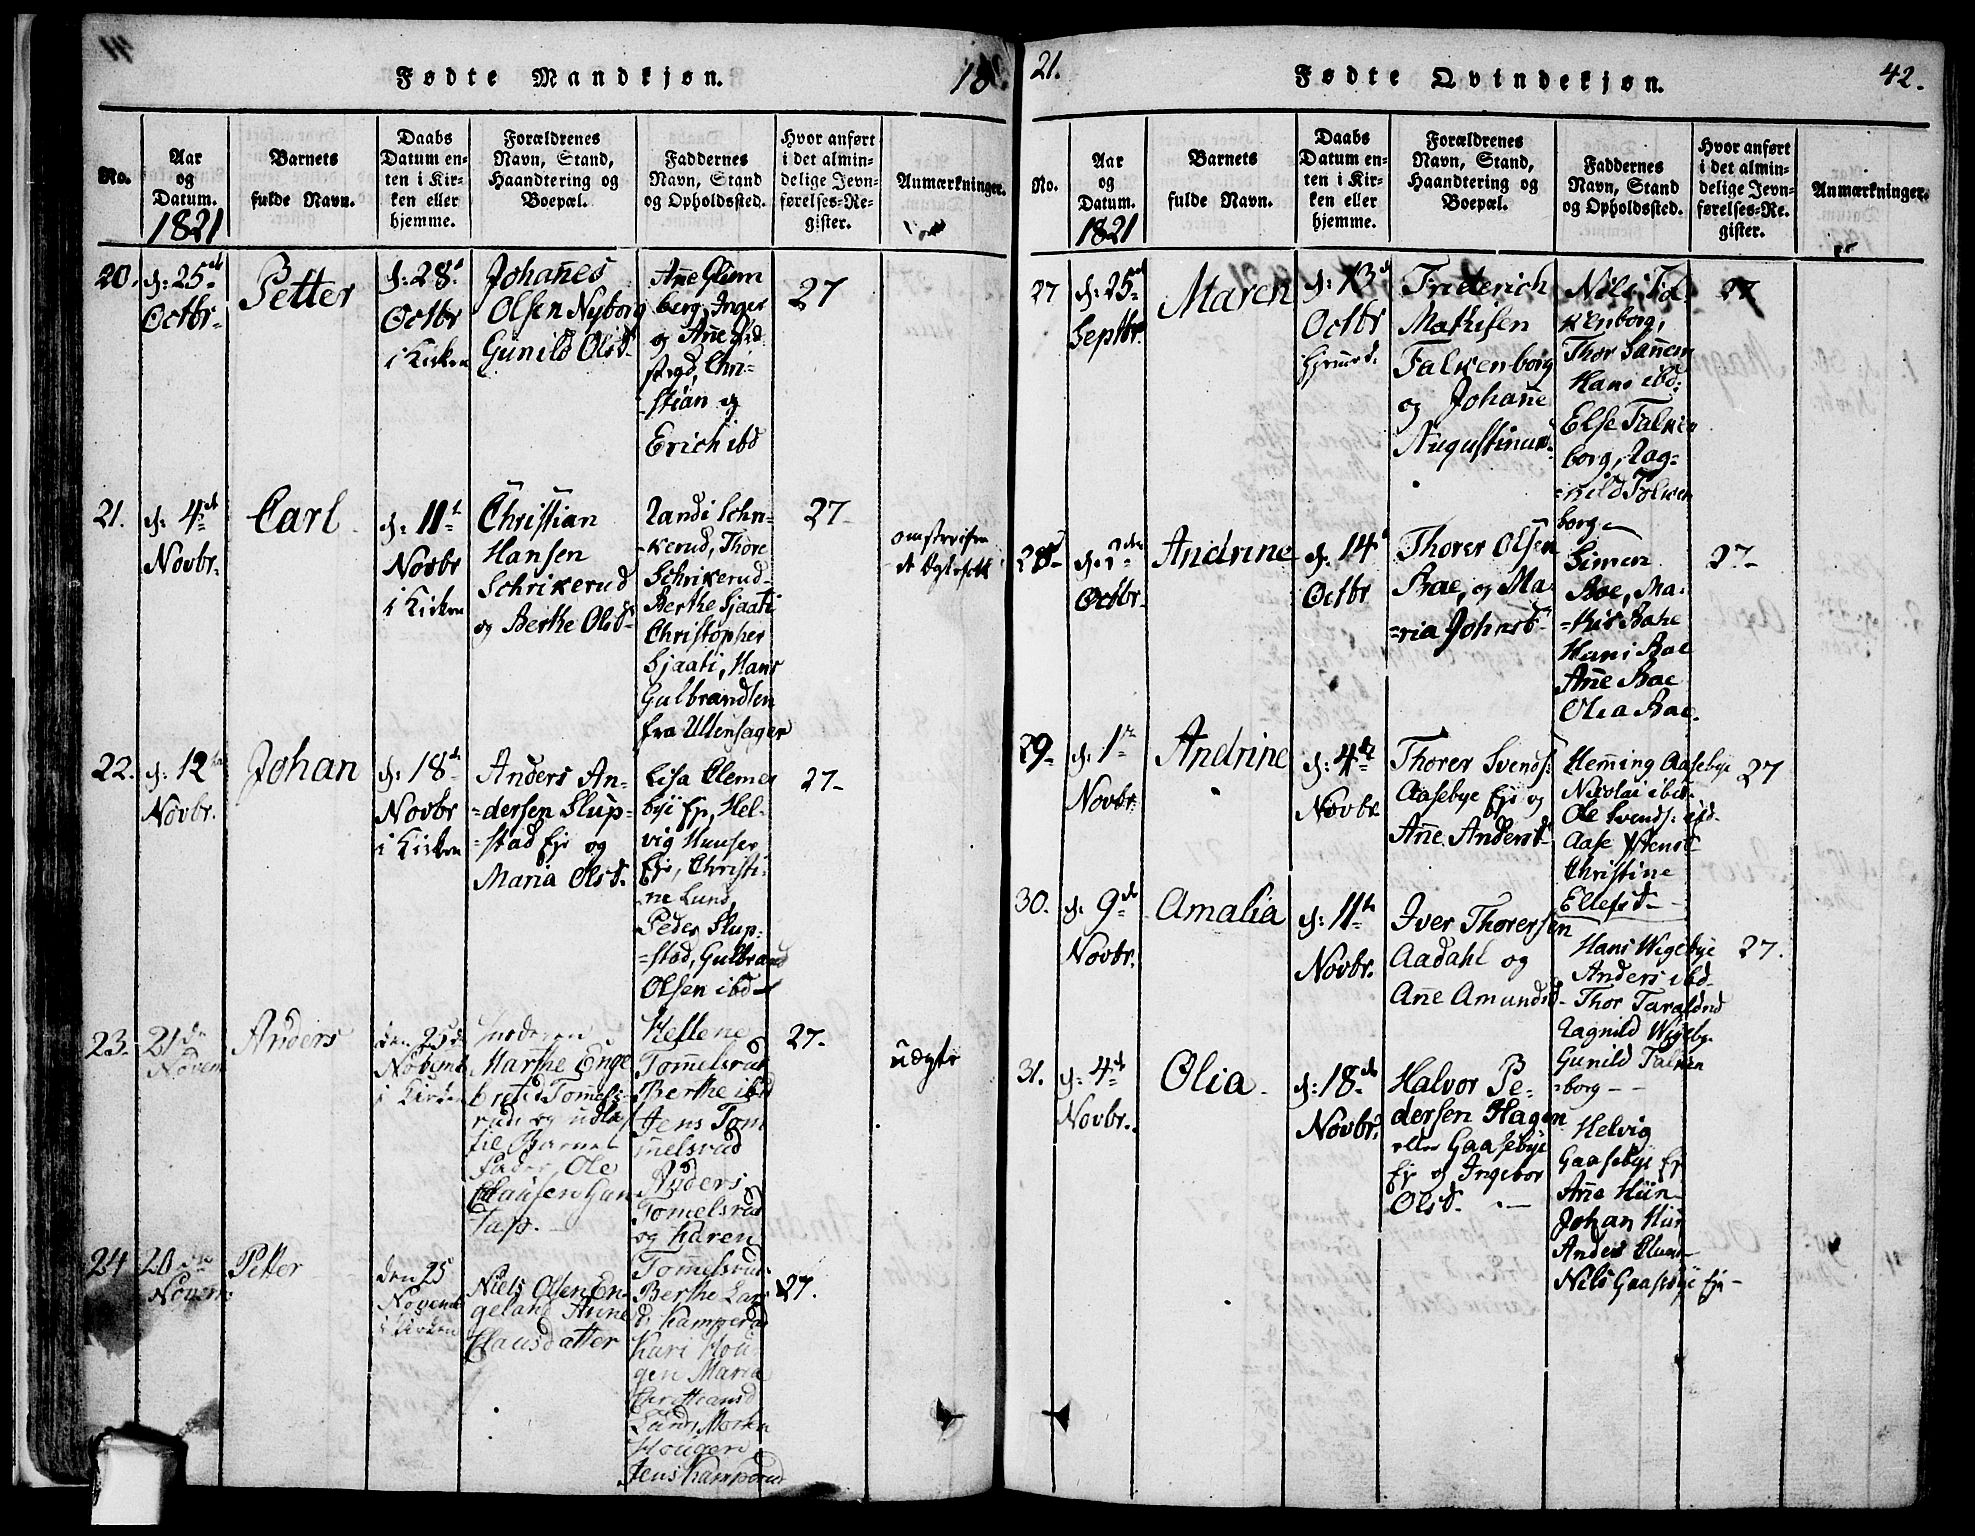 Fødte Mandkjøn.
18
No.
Aar
og
Datum.
1821
Barnets
fulde Navn.
Daabs
Datum en-
ten i Kir-
ken eller
hjemme.
Forældrenes
Navn, Stand,
Haandtering og
Boepæl.
Faddernes
Navn, Stand
og Opholdssted.
Hvor anført
i det almin-
delige Jevn-
førelses-Re-
gister.
Anmærkninger.
20.
d: 25de
Octbr.
Petter
d: 28d
Octbr
i Kirken
Johanes
Olsen Nyborg
Gunild Olsd.
Ane Glem
berg, Inger
og Ane
Chri-
-stian og
Erich ibd
27
21.
d: 4de
Novbr.
Carl
d: 11t
Novbr
i Kirken
Christian
Hansen
Schrikerud
og Berthe Olsd.
Randi Schri-
-kerud, Thore
Schrikerud
Berthe Sjaati
Christopher
Sjaati, Hans
Gulbrandsen
fra Ullensager
27.
22.
d. 12te
Novbr.
Johan
d: 18de
Novbr
i Kirken
Anders An-
=dersen Slup-
=stad Eje og
Maria Olsd.
Lisa Clemes
bye Ej, Hel-
vig Huuser
Eje, Christi-
-ne Lund,
Peder Slup-
=stad, Gulbrand
Olsen ibd
27.
23.
21de
Novem
Anders
den 25d
Novemb
i Kirken
Marthe Enge
bretsd Tomels-
rud, og udlagt
til Barnet
fader, Ole
Clausen
Hellene
Tommelsrud
Berthe ibd
Jens Tom
melsrud
Anders
Tomelsrud
og Karen
Tommelsrud
27.
uægte
24
20de
Novem
Peter
den 25
Novemb
i Kirken
Niels Olsen En-
geland Anne
Clausdatter
Berthe Lars
d. Kamperud
Kari Hou
gen Maria
Christiansd
Lund, Marthe
Hougen
Jens Kamperud
27.
21.
Fødte Qvindekjøn.
42.
No.
Aar
og
Datum.
1821
Barnets
fulde Navn.
Daabs
Datum en-
ten i Kir-
ken eller
hjemme.
Forældrenes
Navn, Stand,
Haandtering og
Boepæl.
Faddernes
Navn, Stand
og Opholdssted.
Hvor anført
i det almin-
delige Jevn-
førelses-Re-
gister.
Anmærkninger.
27
d: 25de
Septbr.
Maren
d: 13d
Octbr
Friderich
Mathisen
Falkenborg
og Johane
Augustinusd.
Nils Fal-
kenborg,
Thor Sannem
Hans ibd:
Else Falken
borg, Rag-
=nild Falken
borg
27
28.
Octbr.
Andrine
d. 14d
Octbr
Thorer Olsen
Bae, og Ma-
=ria Johnsd.
Simen
Bae, Ma-
=this Bahe
Hans Bae
Ane Bae
Olea Bae.
27-
29.
d. 1te
Novbr.
Andrine
d: 4de
Novbr.
Thorer Svends:
Aasebye Eje og
Ane Andersd.
Heming Aasebye
Nicolai ibd.
Ole Svends: ibd.
Aase Ystensd
Christine
Ellefsd
27
30.
d. 9de
Novbr.
Amalia
d: 11te
Novbr.
Iver Thorersen
Aadahl og
Ane Amundsd.
Hans Wigebye
Anders ibd.
Thor Taraldrud
Ragnild Wigeby.
Gunild Falken
=borg
27.
31.
d. 4de
Novbr.
Olia
d: 18de
Novbr.
Halvor Pe-
dersen Hagen
eller Gaasebye
Eje og Ingebor
Olsd.
Helvig
Gaasebye Ej
Ane Hün
Johan Hün
Anders
Nils Gaasebye Eje